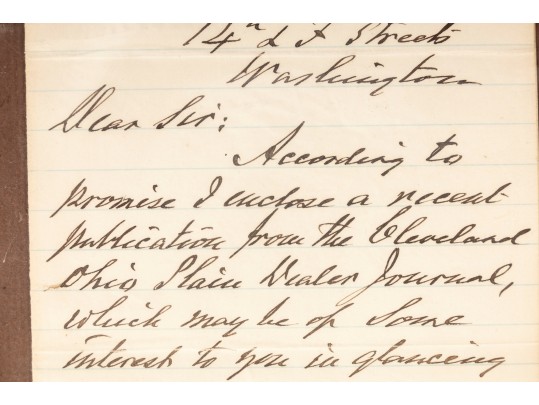 14th & F Streets
Washington
Dear Sir:
According to
promise I enclose a recent
publication from the Cleveland
Ohio Plain Dealer Journal,
which may be of some
interest to you in glancing